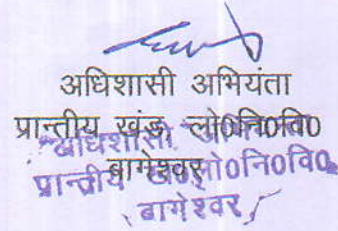 अधिशासी अभियंता
प्रान्तीय खंड लो०नि०वि०
बागेश्वर
अधिशासी
प्रान्तीय लो०नि०वि०
बागेश्वर